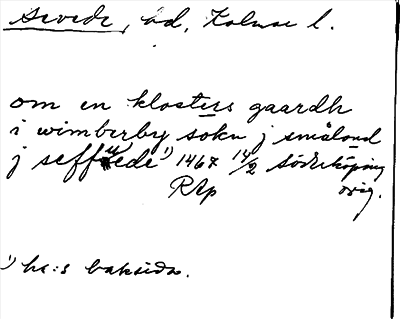 Sevede, hd, Kalmar l.
om en klosters gaardh
i wimberby sokn j småland
j seffwede 1) 1467 14/2 Söderköping
RAp orig.
1) hs:s baksida.